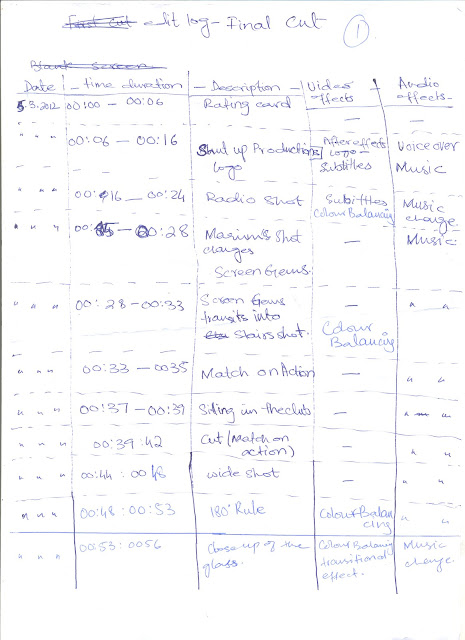 First Cut edit log - Final Cut
1
Blank screen
Date - time duration - Description - Video effects - Audio effects -
5.3.2012 00:00 - 00:06 Rating card —
" " " 00:06 - 00:16 Shut up Productions logo After effects logo - Subtitles Voice over Music
" " " 00:16 - 00:24 Radio shot Subtitles Colour Balancing Music change
" " " 00:25 - 00:28 Marium's shot changes Screen Gems — Music
" " " 00:28 - 00:33 Screen Gems transits into Stairs shot. Colour Balancing " "
" " " 00:33 - 0035 Match on Action — " "
" " " 00:37 - 00:39 Siding in the club — " "
" " " 00:39:42 Cut (Match on action) — " "
" " " 00:44 : 0048 wide shot — " "
" " " 00:48 : 00:53 180° Rule Colour Balancing " "
" " " 00:53 : 0056 close up of the glass. Colour Balancing transitional effect. Music change.